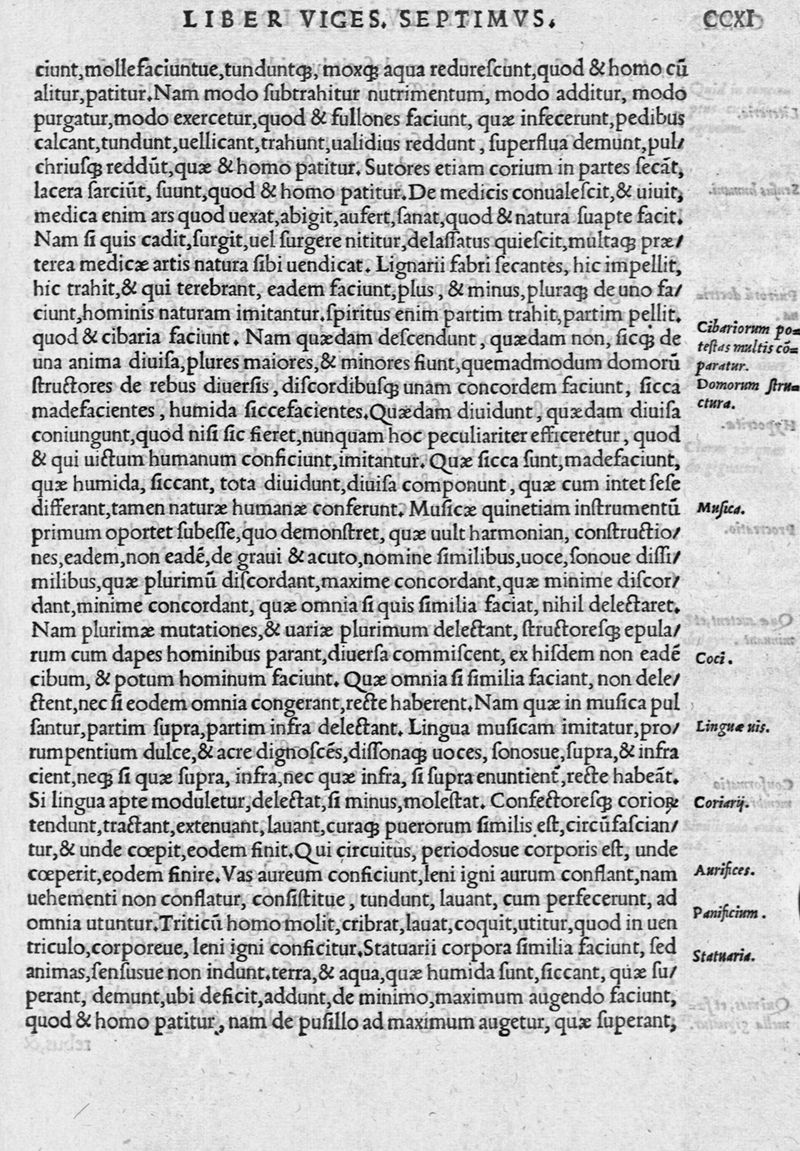 LIBER VIGES. SEPTIMVS. CCXI
ciunt,mollefaciuntue,tunduntqꝫ, moxqꝫ aqua redurescunt,quod & homo cũ
alitur,patitur.Nam modo subtrahitur nutrimentum, modo additur, modo
purgatur,modo exercetur,quod & fullones faciunt, quæ infecerunt,pedibus
calcant,tundunt,uellicant,trahunt,ualidius reddunt, superflua demunt,pul/
chriusqꝫ reddũt,quæ & homo patitur. Sutores etiam corium in partes secãt,
lacera sarciũt, suunt,quod & homo patitur.De medicis conualescit,& uiuit,
medica enim ars quod uexat,abigit,aufert,sanat,quod & natura suapte facit.
Nam si quis cadit,surgit,uel surgere nititur,delassatus quiescit,multaqꝫ præ/
terea medicæ artis natura sibi uendicat. Lignarii fabri secantes, hic impellit,
hic trahit,& qui terebrant, eadem faciunt,plus, & minus,pluraqꝫ de uno fa/
ciunt,hominis naturam imitantur.spiritus enim partim trahit,partim pellit.
quod & cibaria faciunt. Nam quædam descendunt, quædam non, sicqꝫ de
Cibariorum po=
testas multis cõ=
paratur.
una anima diuisa,plures maiores,& minores fiunt,quemadmodum domorũ
structores de rebus diuersis, discordibusqꝫ unam concordem faciunt, sicca
Domorum stru=
ctura.
madefacientes, humida siccefacientes.Quædam diuidunt, quædam diuisa
coniungunt,quod nisi sic fieret,nunquam hoc peculiariter efficeretur, quod
& qui uictum humanum conficiunt,imitantur. Quæ sicca sunt,madefaciunt,
quæ humida, siccant, tota diuidunt,diuisa componunt, quæ cum intet sese
differant,tamen naturæ humanæ conferunt. Musicæ quinetiam instrumentũ
Musica.
primum oportet subesse,quo demonstret, quæ uult harmonian, constructio/
nes,eadem,non eadẽ,de graui & acuto,nomine similibus,uoce,sonoue dissi/
milibus,quæ plurimũ discordant,maxime concordant,quæ minime discor/
dant,minime concordant, quæ omnia si quis similia faciat, nihil delectaret.
Nam plurimæ mutationes,& uariæ plurimum delectant, structoresqꝫ epula/
rum cum dapes hominibus parant,diuersa commiscent, ex hisdem non eadẽ
Coci.
cibum, & potum hominum faciunt. Quæ omnia si similia faciant, non dele/
ctent,nec si eodem omnia congerant,recte haberent.Nam quæ in musica pul
santur,partim supra,partim infra delectant. Lingua musicam imitatur,pro/
Linguæ uis.
rumpentium dulce,& acre dignoscẽs,dissonaqꝫ uoces, sonosue,supra,& infra
cient,neqꝫ si quæ supra, infra,nec quæ infra, si supra enuntient̃,recte habeãt.
Si lingua apte moduletur,delectat,si minus,molestat. Confectoresqꝫ corioꝝ
Coriarij.
tendunt,tractant,extenuant,lauant,curaqꝫ puerorum similis est,circũfascian/
tur,& unde cœpit,eodem finit.Qui circuitus, periodosue corporis est, unde
cœperit,eodem finire.Vas aureum conficiunt,leni igni aurum conflant,nam
Aurifices.
uehementi non conflatur, consistitue, tundunt, lauant, cum perfecerunt, ad
omnia utuntur.Triticũ homo molit,cribrat,lauat,coquit,utitur,quod in uen
Panificium.
triculo,corporeue, leni igni conficitur.Statuarii corpora similia faciunt, sed
Statuaria.
animas,sensusue non indunt.terra,& aqua,quæ humida sunt,siccant, quæ su/
perant, demunt,ubi deficit,addunt,de minimo,maximum augendo faciunt,
quod & homo patitur, nam de pusillo ad maximum augetur, quæ superant,